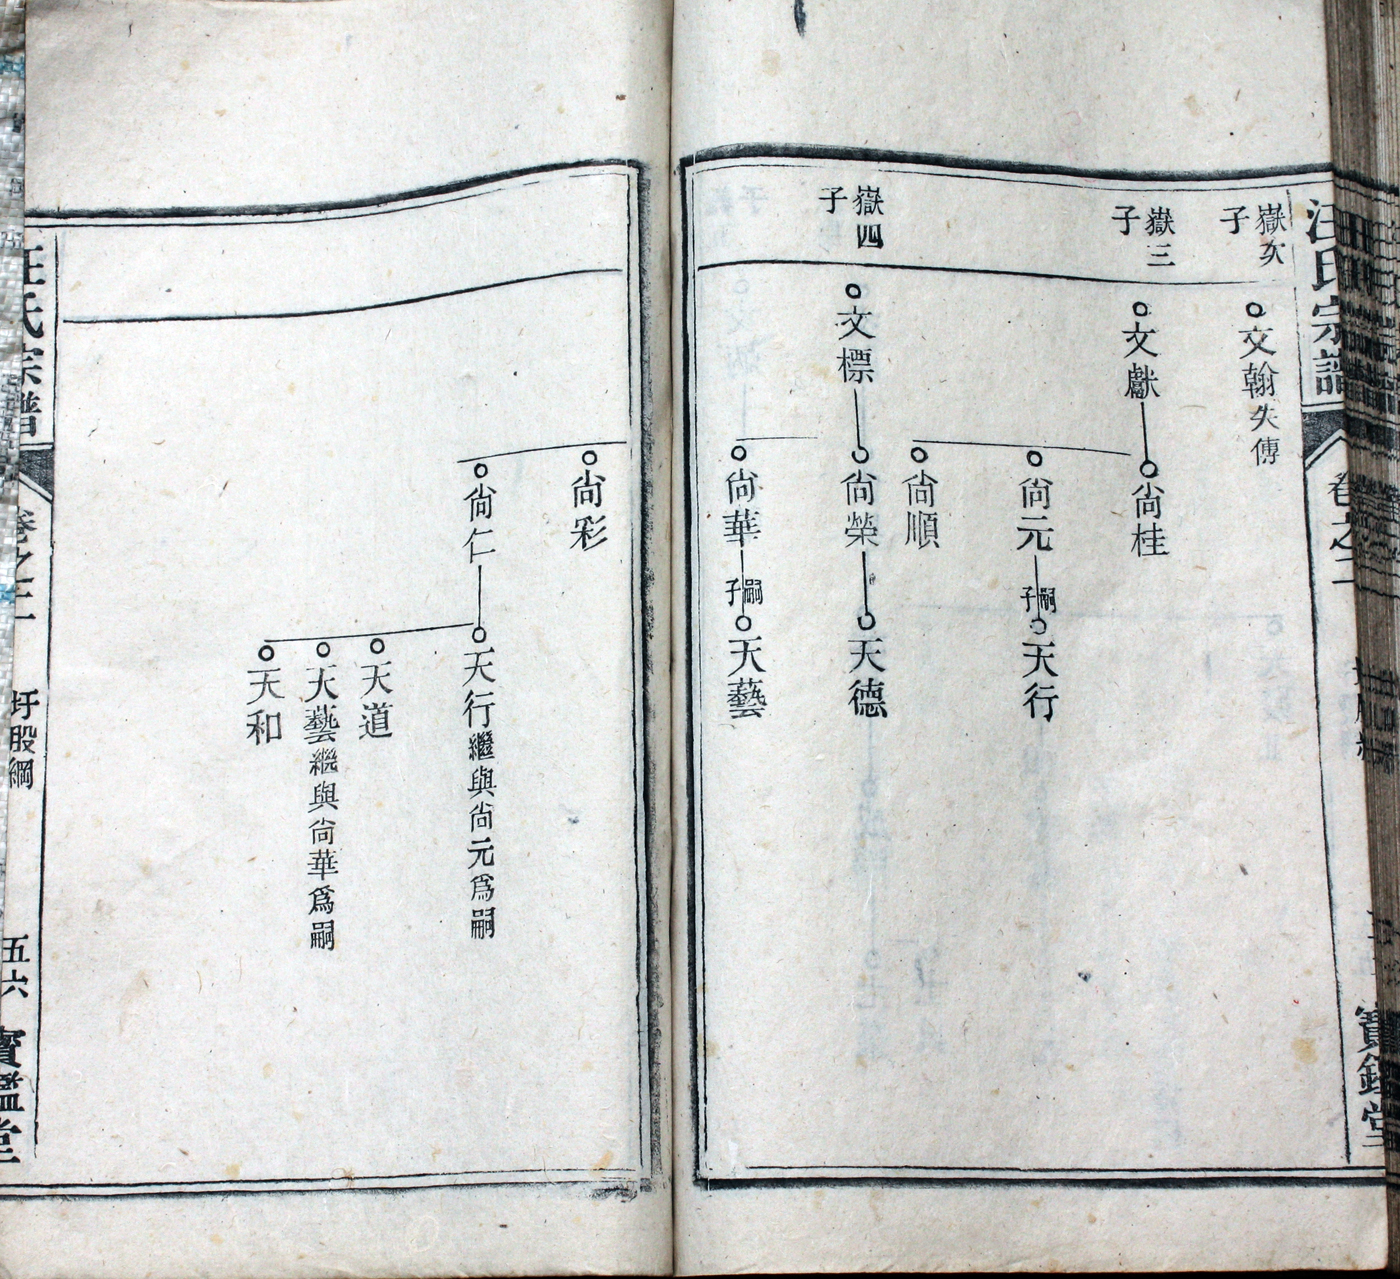 汪氏宗譜
卷之二
寶鑑堂
嶽次子
文翰失傳
嶽三子
文獻
尙桂
尙元
嗣子
天行
尙順
嶽四子
文標
尙榮
天德
尙華
嗣子
天藝
尙彩
尙仁
天行繼與尙元爲嗣
天道
天藝繼與尙華爲嗣
天和
汪氏宗譜
卷之二
圩股綱
五六
寶鑑堂